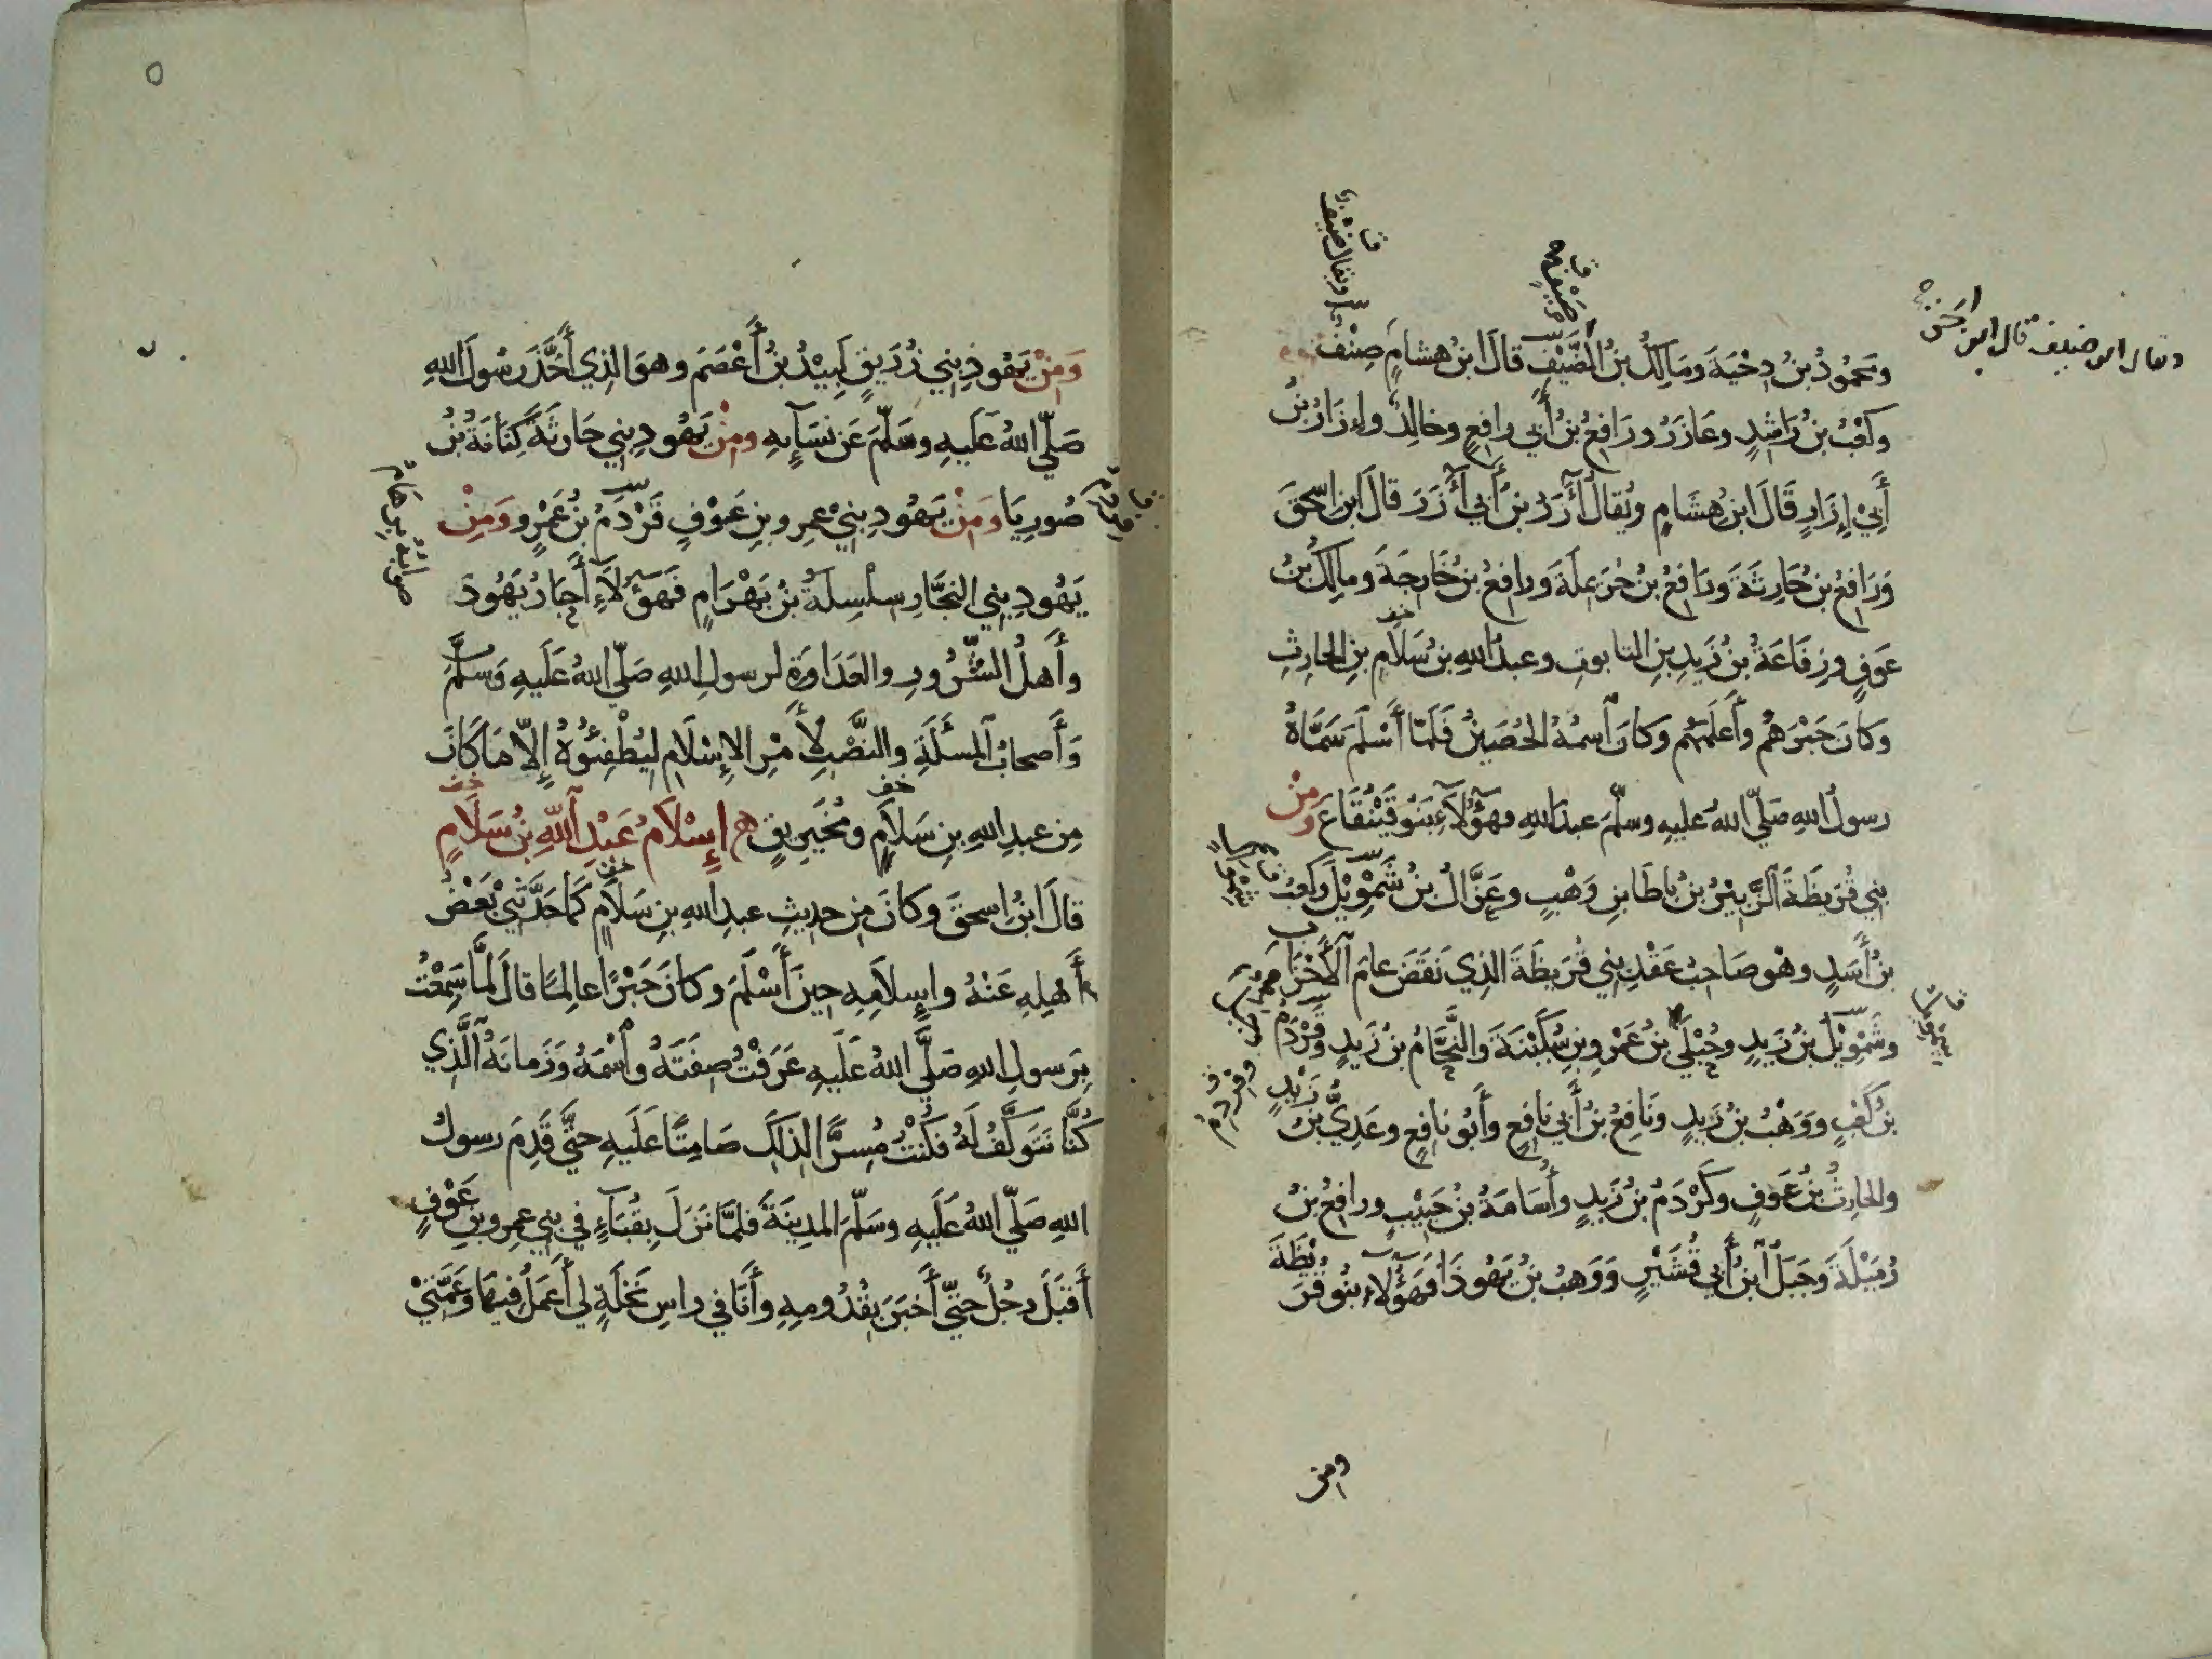 ومحمود بن دحية ومالك بن الضيف قال ابن هشام صنف
وكعب بن راشد وعازر ورافع بن أبي رافع وخالد وإزار بن
أبي إزار قال ابن هشام ويقال آزر بن أبي آزر قال ابن إسحق
ورافع بن حارثة ورافع بن حريملة ورافع بن خارجة ومالك بن
عوف ورفاعة بن زيد بن التابوت وعبد الله بن سلام بن الحارث
وكان حبرهم وأعلمهم وكان اسمه الحصين فلما أسلم سماه
رسول الله صلى الله عليه وسلم عبد الله فهؤلاء بنو قينقاع ومن
بني قريظة الزبير بن باطا بن وهب وعزال بن شمويل وكعب
بن أسد وهو صاحب عقد بني قريظة الذي نقض عام الأحزاب
وشمويل بن زيد وجبل بن عمرو بن سكينة والنحام بن زيد وقردم
بن كعب ووهب بن زيد ونافع بن أبي نافع وأبو نافع وعدي بن زيد
والحارث بن عوف وكردم بن زيد وأسامة بن حبيب ورافع بن
رميلة وجبل ابن أبي قشير ووهب بن يهوذا فهؤلاء بنو قريظة
ومن
ومن يهود بني زريق لبيد بن أعصم وهو الذي أخذ رسول الله
صلى الله عليه وسلم عن نسآئه ومن يهود بني حارثة كنانة بن
صوريا ومن يهود بني عمرو بن عوف قردم بن عمرو ومن
يهود بني النجار سلسلة بن بهرام فهؤلاء أحبار يهود
وأهل الشرور والعداوة لرسول الله صلى الله عليه وسلم
وأصحاب المسئلة والنصب لأمر الإسلام ليطفئوه إلا ما كان
من عبد الله بن سلام ومخيريق إسلام عبد الله بن سلام
قال ابن إسحق وكان من حديث عبد الله بن سلام كما حدثني بعض
أهله عنه وإسلامه حين أسلم وكان حبرا عالما قال لما سمعت
برسول الله صلى الله عليه عرفت صفته واسمه وزمانه الذي
كنا نتوكف له فكنت مسرا لذلك صامتا عليه حتى قدم رسول
الله صلى الله عليه وسلم المدينة فلما نزل بقباء في بني عمرو بن عوف
أقبل رجل حتى أخبر بقدومه وأنا في راس نخلة لي أعمل فيها وعمتي